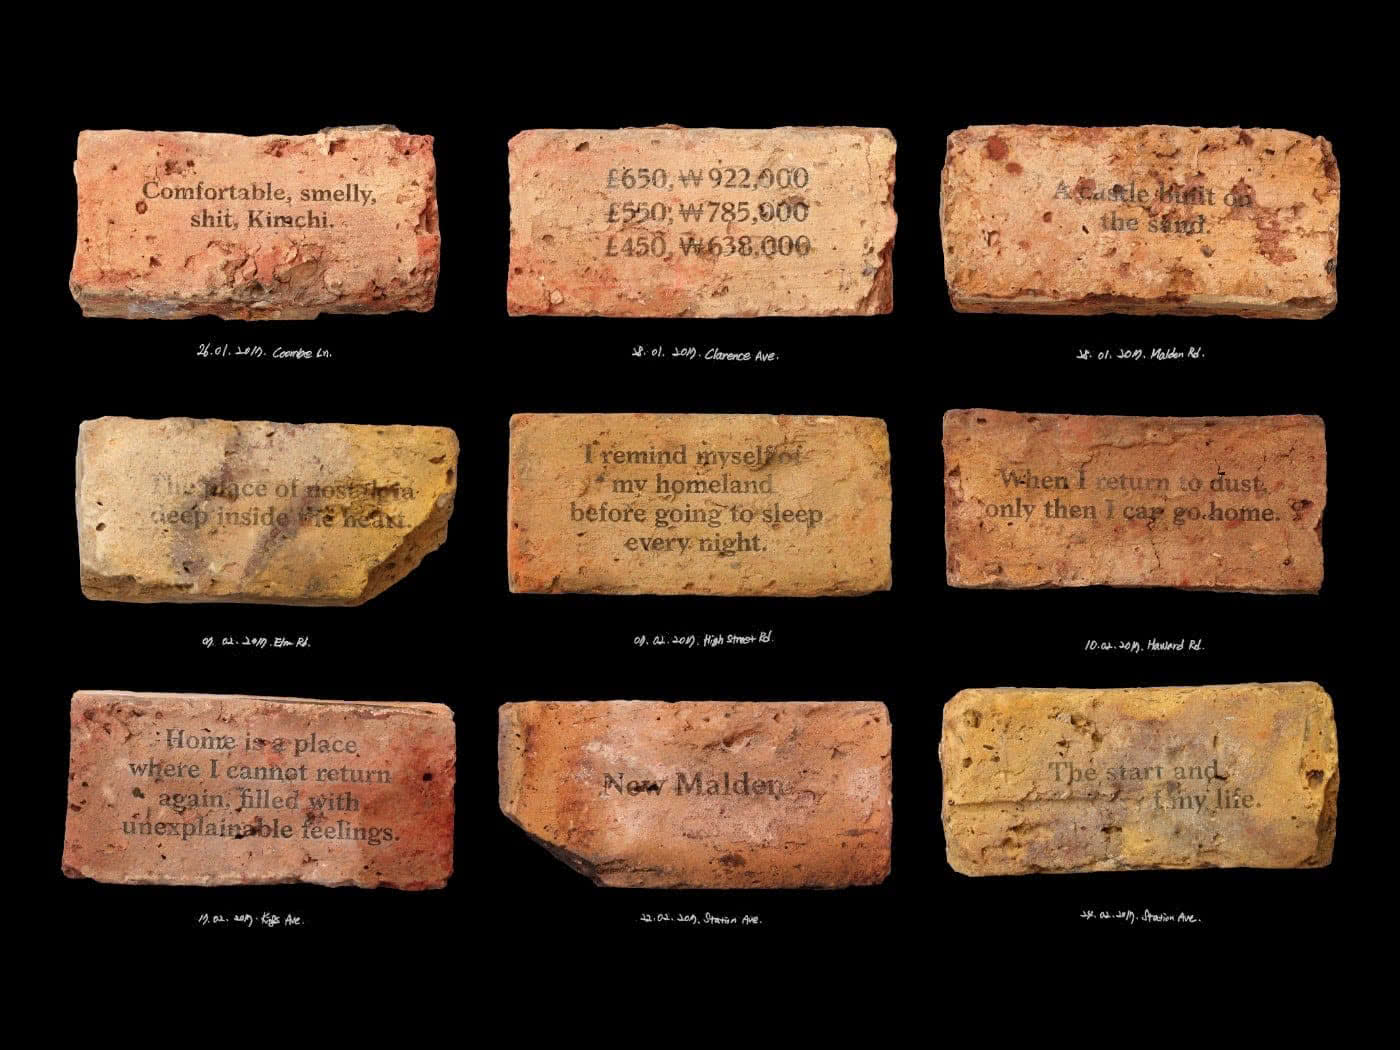 Comfortable, smelly,
shit, Kimchi.
26.01.2017. Coombe Ln.
£650, ₩922,000
£550, ₩785,000
£450, ₩638,000
28.01.2017. Clarence Ave.
A castle built on
the sand.
28.01.2017. Malden Rd.
The place of nostalgia
deep inside the heart.
02.2017. Elm Rd.
I remind myself of
my homeland
before going to sleep
every night.
02.2017. High Street Rd.
When I return to dust,
only then I can go home.
10.02.2017. Howard Rd.
Home is a place
where I cannot return
again, filled with
unexplainable feelings.
17.02.2017. Kings Ave.
New Malden
22.02.2017. Station Ave.
The start and
of my life.
24.02.2017. Station Ave.